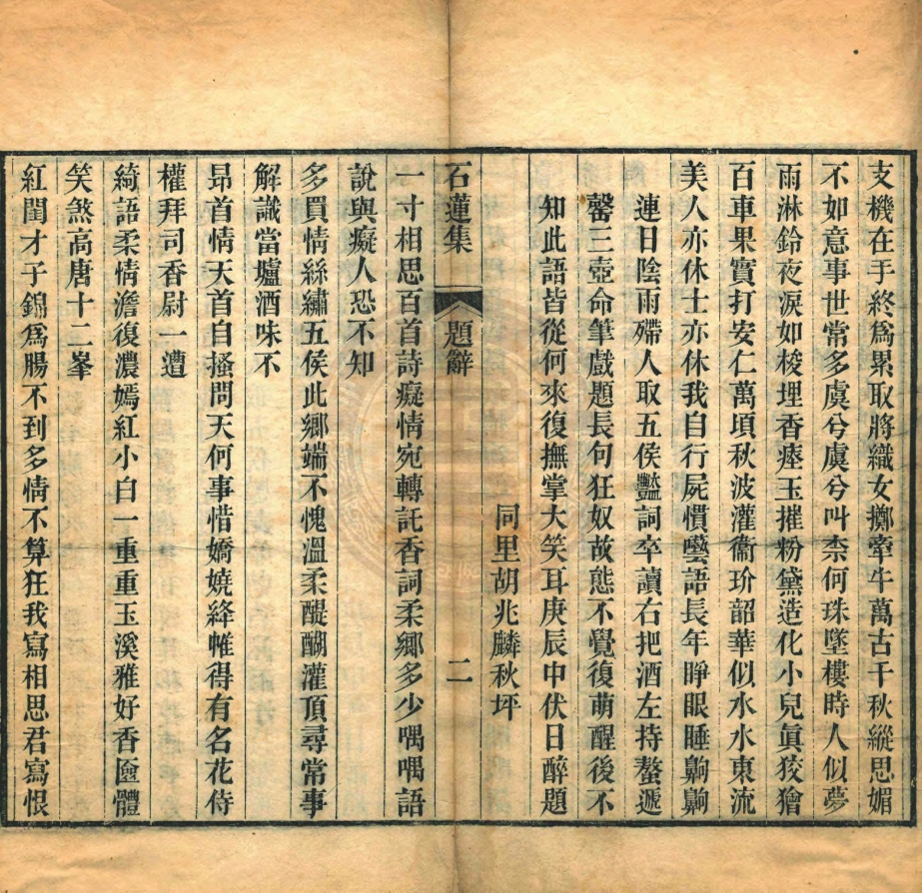 支機在于終爲累取將織女擲牽牛萬古千秋縱思媚
不如意事世常多虞兮虞兮叫柰何珠墜樓時人似夢
雨淋鈴夜淚如梭埋香瘞玉摧粉黛造化小兒眞狡獪
百車果實打安仁萬頃秋波灌衞玠韶華似水水東流
美人亦休士亦休我自行屍慣囈語長年睜眼睡齁齁
連日陰雨殢人取五侯豔詞卒讀右把酒左持螯遞
罄三壺命筆戲題長句狂奴故態不覺復萌醒後不
知此語皆從何來復撫掌大笑耳庚辰中伏日醉題
同里胡兆麟秋坪
石蓮集 題辭 二
一寸相思百首詩癡情宛轉託香詞柔鄉多少喁喁語
說與癡人恐不知
多買情絲繡五侯此鄉端不愧溫柔醍醐灌頂尋常事
解識當壚酒味不
昂首情天首自搔問天何事惜嬌嬈絳帷得有名花侍
權拜司香尉一遭
綺語柔情澹復濃嫣紅小白一重重玉溪雅好香匳體
笑煞高唐十二峯
紅閨才子錦爲腸不到多情不算狂我寫相思君寫恨